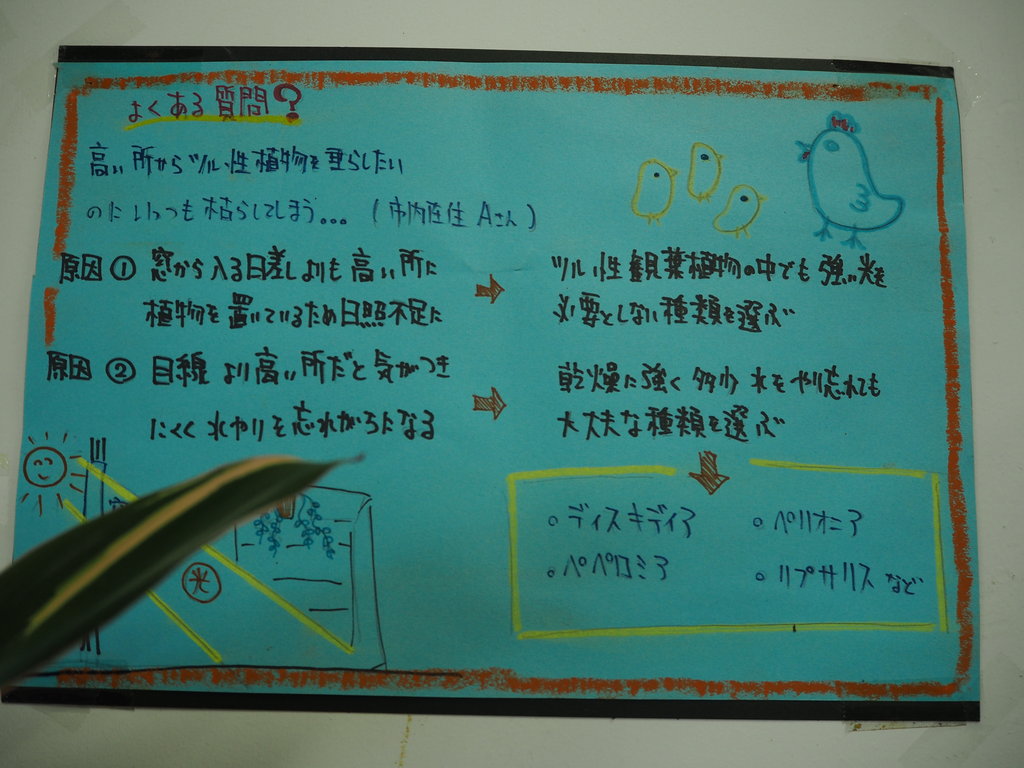 よくある質問?
高い所からツル性植物を垂らしたい
のにいつも枯らしてしまう... (市内在住 Aさん)
原因① 窓から入る日差しよりも高い所に
植物を置いているため日照不足に
ツル性観葉植物の中でも強い光を
必要としない種類を選ぶ
原因② 目線より高い所だと気がつき
にくく水やりを忘れがちになる
乾燥に強く多少水をやり忘れても
大丈夫な種類を選ぶ
光
○ディスキディア
○ペリオニア
○ペペロミア
○リプサリス など